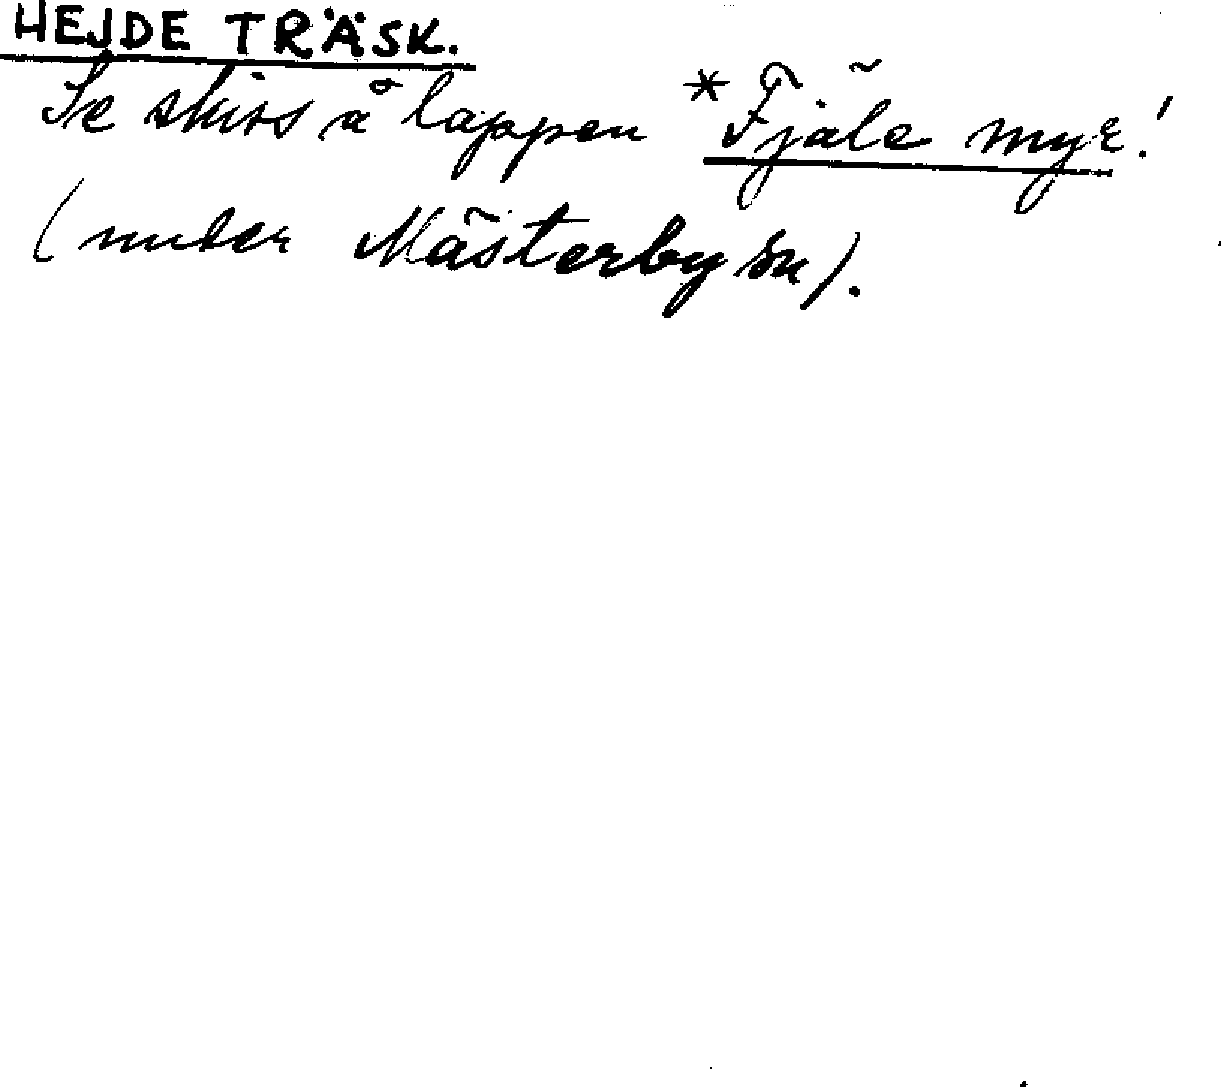 HEJDE TRÄSK.
Se skiss å lappen *Fjäle myr!
(under Mästerby sn).